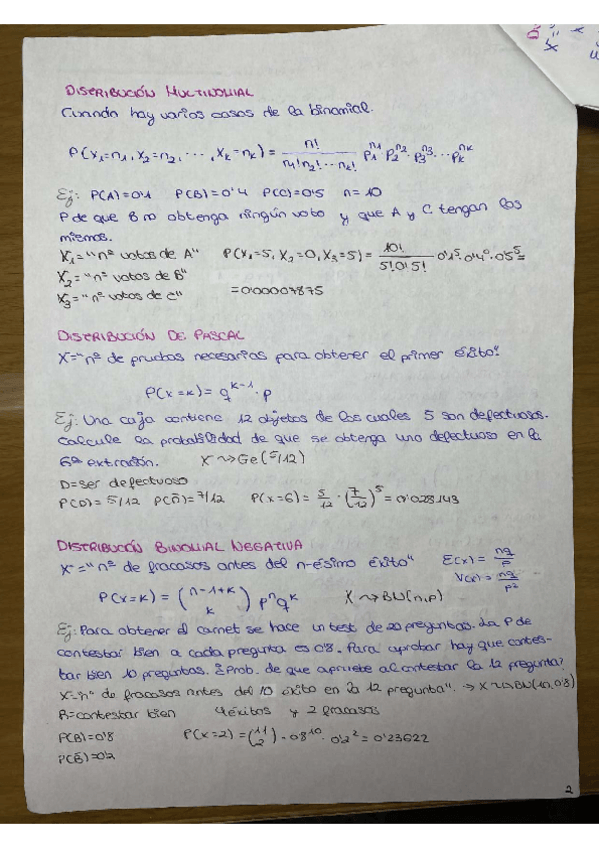 DISTRIBUCIÓN MULTINOMIAL
Cuando hay varios casos de la binomial.
P(X₁=n₁, X₂=n₂, ..., Xₖ=nₖ) = n! / (n₁! n₂! ... nₖ!) p₁^n₁ · p₂^n₂ · p₃^n₃ ... pₖ^nₖ
Ej: P(A)=0'1 P(B)=0'4 P(C)=0'5 n=10
P de que B no obtenga ningún voto y que A y C tengan los
mismos.
X₁="nº votos de A" P(X₁=5, X₂=0, X₃=5) = 10! / (5! 0! 5!) 0'1⁵ · 0'4⁰ · 0'5⁵ =
X₂="nº votos de B"
X₃="nº votos de C" = 0'00007875
DISTRIBUCIÓN DE PASCAL
X="nº de pruebas necesarias para obtener el primer éxito"
P(X=k) = q^(k-1) · p
Ej: Una caja contiene 12 objetos de los cuales 5 son defectuosos.
Calcule la probabilidad de que se obtenga uno defectuoso en la
6ª extracción. X ⇝ Ge(5/12)
D=ser defectuoso
P(D)=5/12 P(D̄)=7/12 P(X=6) = 5/12 · (7/12)⁵ = 0'028143
DISTRIBUCIÓN BINOMIAL NEGATIVA
X="nº de fracasos antes del n-ésimo éxito" E(x) = nq/p
V(x) = nq/p²
P(X=k) = (n-1+k k) pⁿ q^k X ⇝ BN(n,p)
Ej: Para obtener el carnet se hace un test de 20 preguntas. La P de
contestar bien a cada pregunta es 0'8. Para aprobar hay que contes-
tar bien 10 preguntas. ¿Prob. de que apruebe al contestar la 12 pregunta?
X="nº de fracasos antes del 10 éxito en la 12 pregunta". ⇒ X ⇝ BN(10, 0'8)
B=contestar bien éxitos y 2 fracasos
P(B)=0'8 P(X=2) = (11 2) · 0'8¹⁰ · 0'2² = 0'23622
P(B̄)=0'2
2